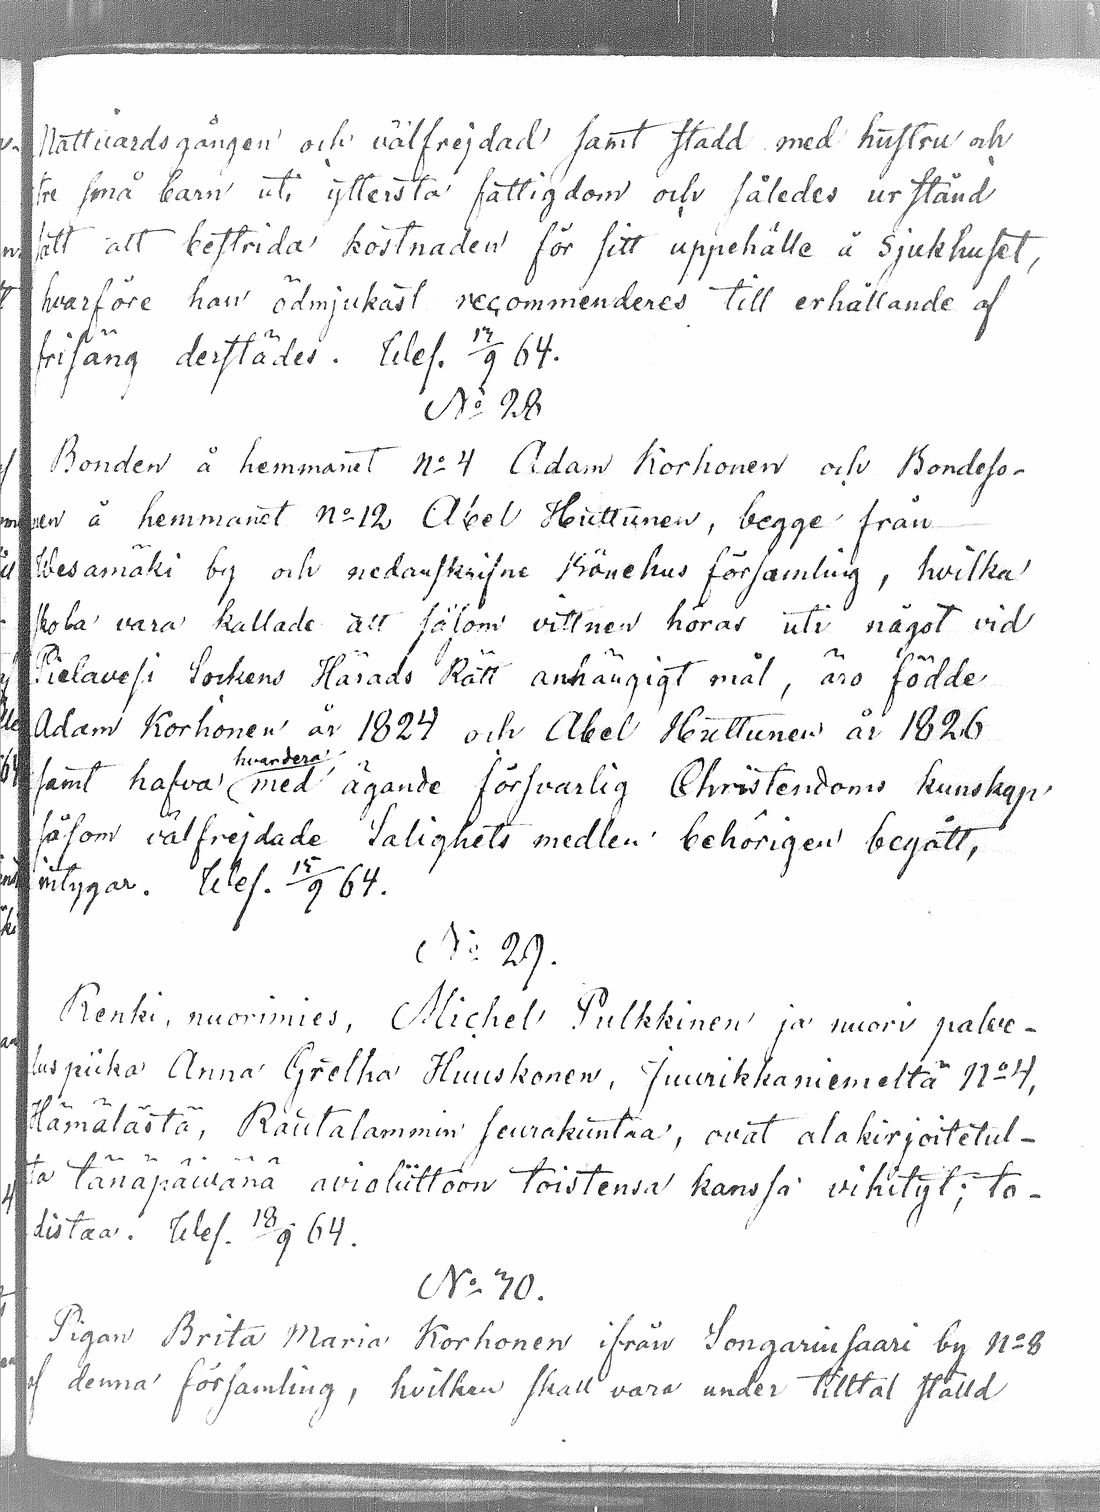 Nattvardsgången och välfrejdad samt stadd med hustru och
tre små barn uti yttersta fattigdom och således urstånd
satt att bestrida kostnaden för sitt uppehälle å Sjukhuset,
hvarföre han ödmjukast recommenderes till erhållande af
frisäng derstädes. Wesf. 13/9 64.
No 28
Bonden å hemmanet No 4 Adam Korhonen och Bondeso-
nen å hemmanet No 12 Abel Huttunen, begge från
Wesamäki by och nedanskrifne församling, hvilka
skola vara kallade att såsom vittnen höras uti något vid
Pielavesi Sockens Härads Rätt anhängigt mål, äro födde
Adam Korhonen år 1824 och Abel Huttunen år 1826
hvardera
samt hafva med ägande försvarlig Christendoms kunskap
såsom välfrejdade Salighets medlen behörigen begått,
intygar. Wesf. 15/9 64.
No 29.
Renki, nuorimies, Michel Pulkkinen ja nuori palve-
luspiika Anna Gretha Huuskonen, Juurikkaniemeltä No 4,
Hämälästä, Rautalammin seurakuntaa, ovat alakirjoitetul-
ta tänäpäivänä avioliittoon toistensa kanssa vihityt; to-
distaa. Wesf. 18/9 64.
No 30.
Pigan Brita Maria Korhonen ifrån Songarinsaari by No 8
af denna församling, hvilken skall vara under tilltal ställd